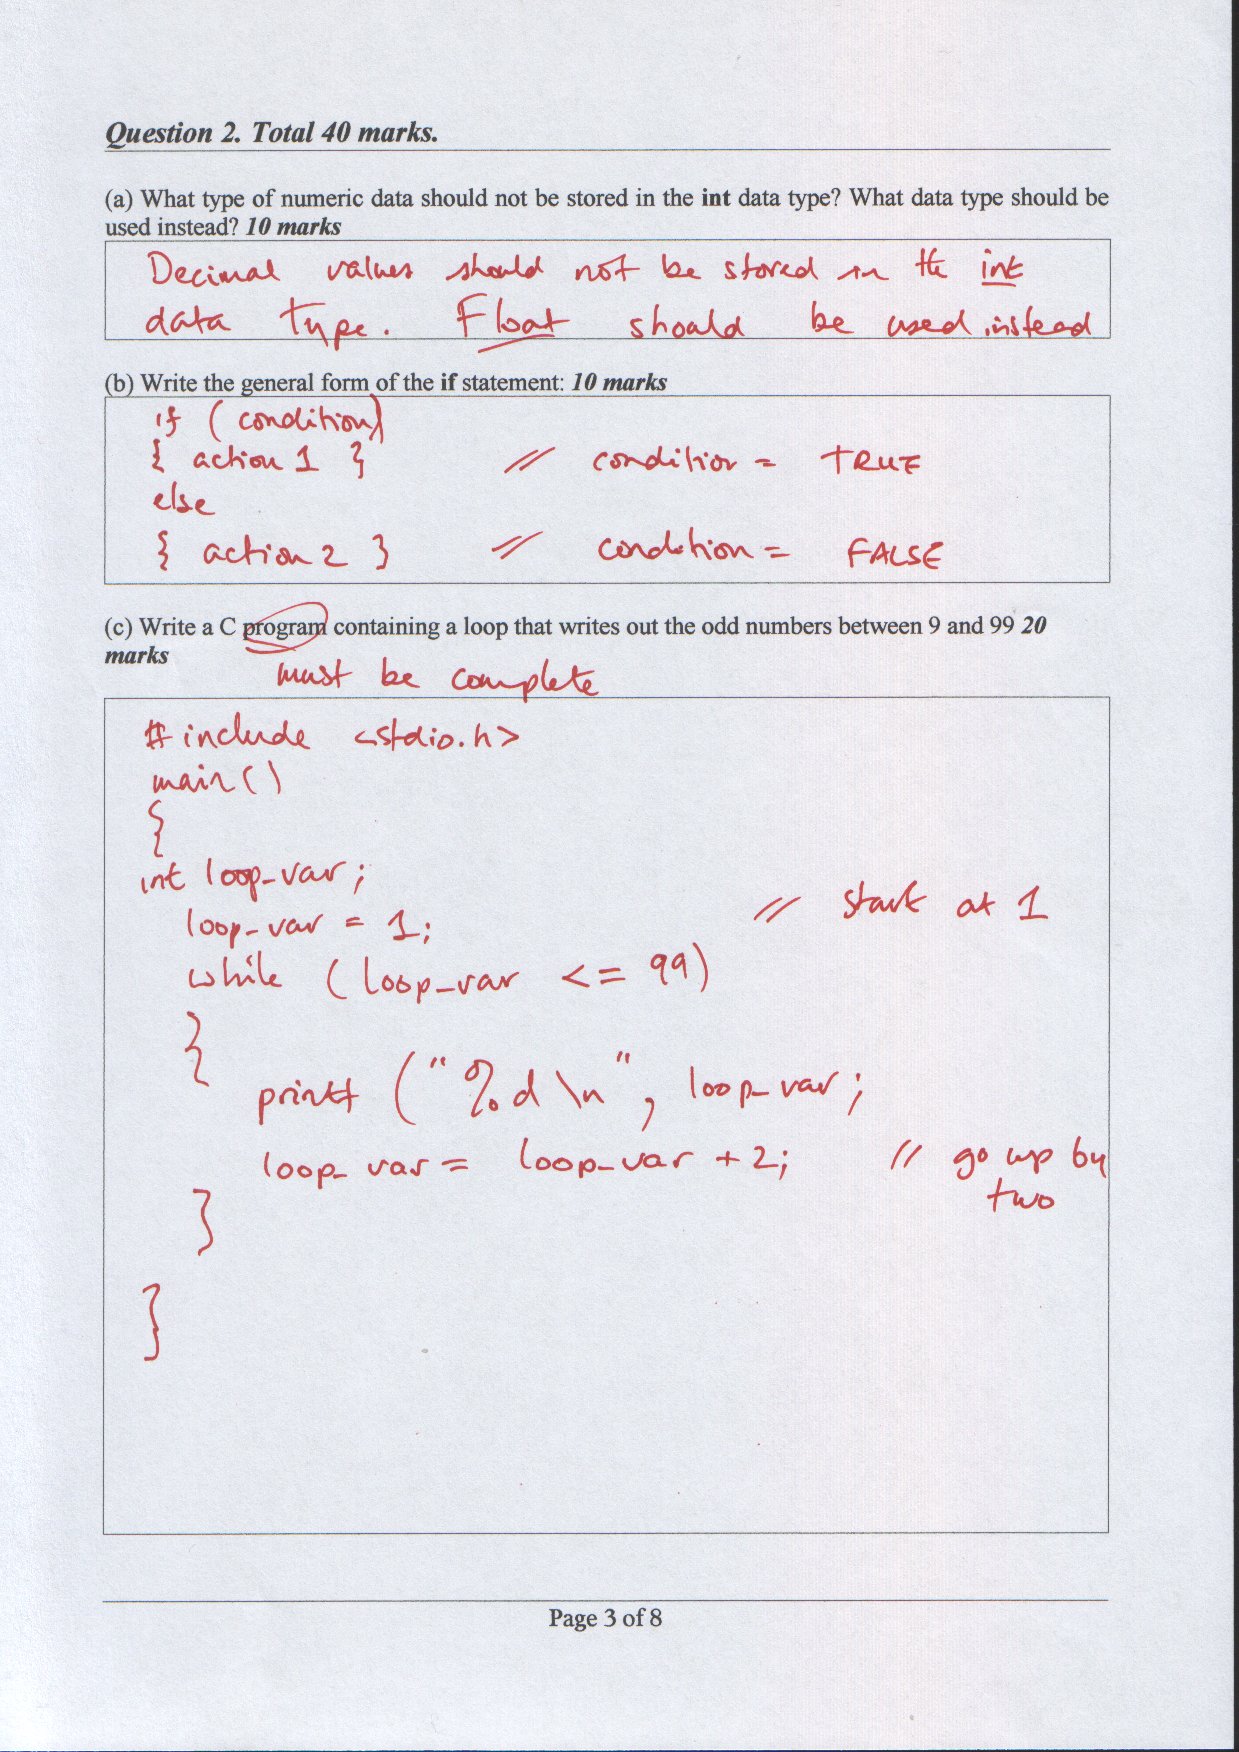 Question 2. Total 40 marks.
(a) What type of numeric data should not be stored in the int data type? What data type should be
used instead? 10 marks
Decimal values should not be stored in the int
data type. Float should be used instead
(b) Write the general form of the if statement: 10 marks
if (condition)
{ action 1 } // condition = TRUE
else
{ action 2 } // condition = FALSE
(c) Write a C program containing a loop that writes out the odd numbers between 9 and 99 20
marks
must be complete
# include <stdio.h>
main()
{
int loop_var;
loop_var = 1; // start at 1
while (loop_var <= 99)
{
printf ("%d\n", loop_var;
loop_var = loop_var + 2; // go up by
two
}
}
Page 3 of 8